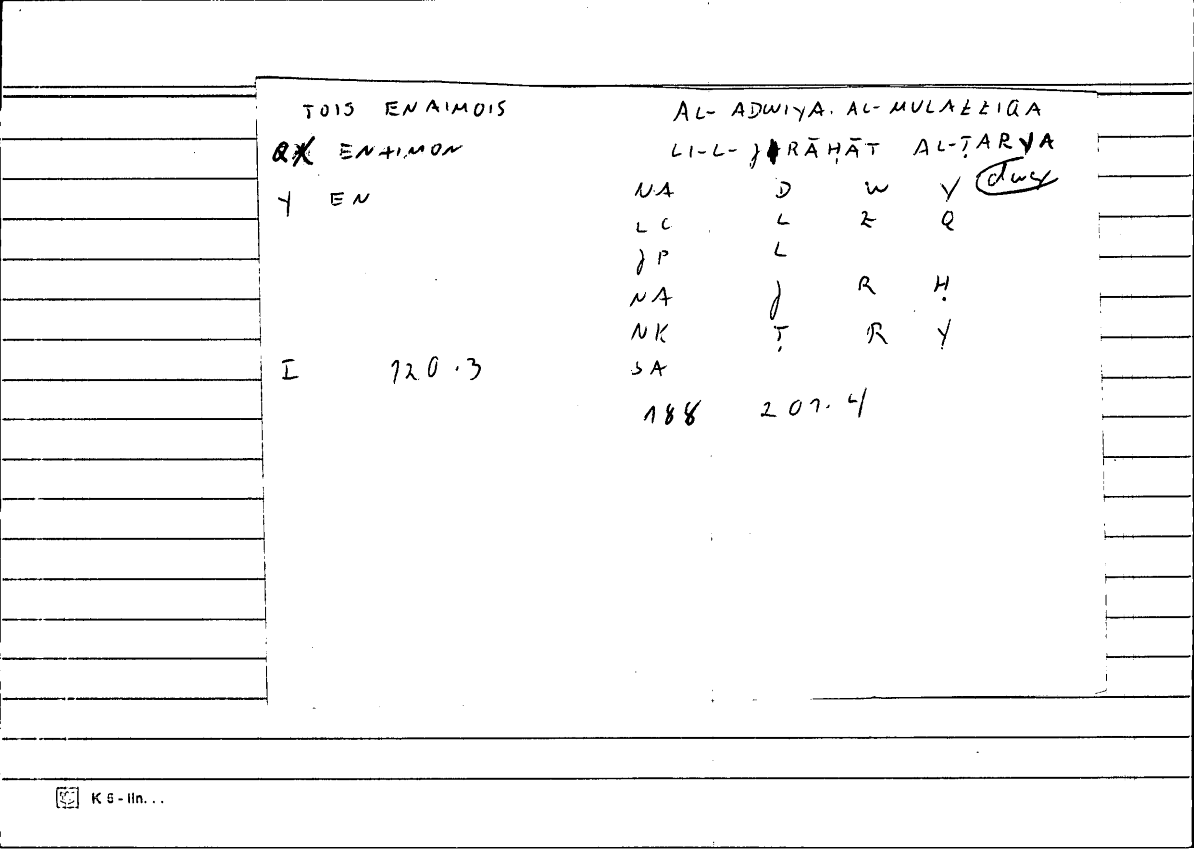 TOIS ENAIMOIS AL- ADWIYA. AL-MULAZZIQA
ENAIMON LI-L-JIRĀḤĀT AL-ṬARYA
Y EN NA D W Y dwy
LC L Z Q
JP L
NA J R Ḥ
NK Ṭ R Y
I 120.3 SA
188 201.4
K 6 - lin...